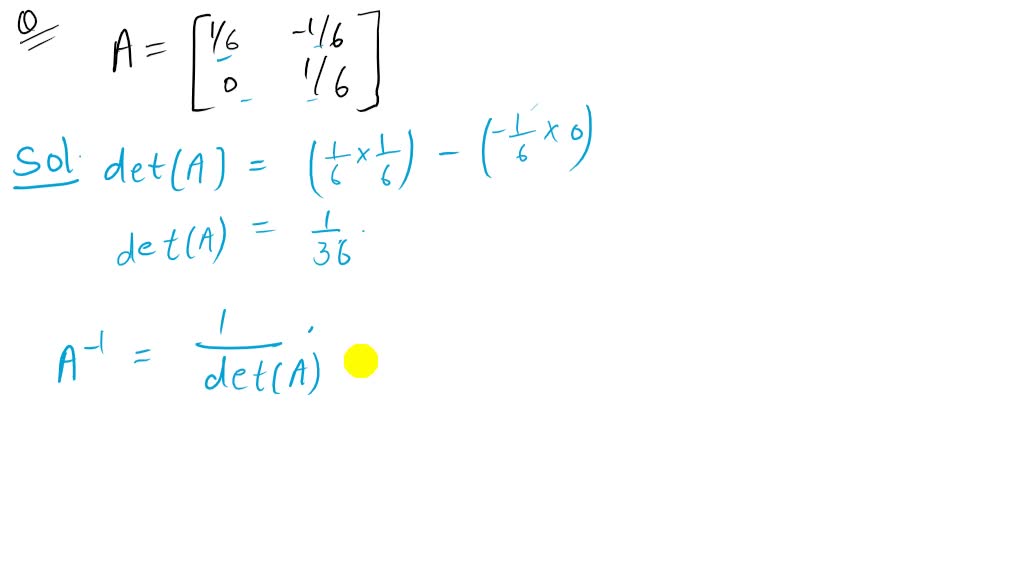 Q
A = [ 1/6 -1/6
0 1/6 ]
Sol. det(A) = (1/6 × 1/6) - (-1/6 × 0)
det(A) = 1/36.
A^-1 = 1/det(A)